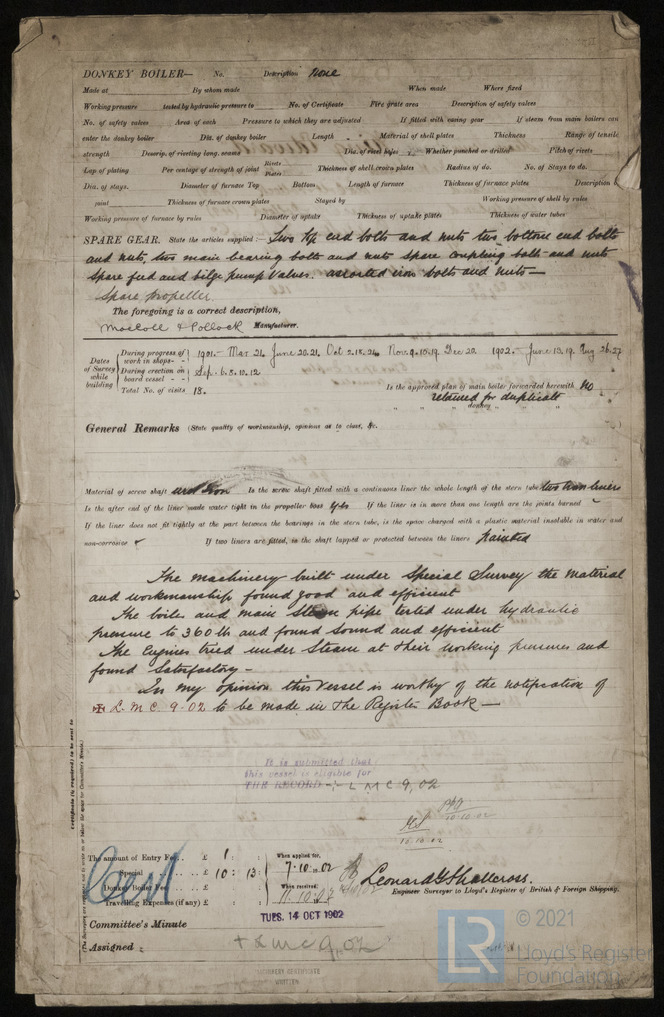 DONKEY BOILER— No. Description None
Made at By whom made When made Where fixed
Working pressure tested by hydraulic pressure to No. of Certificate Fire grate area Description of safety valves
No. of safety valves Area of each Pressure to which they are adjusted If fitted with easing gear If steam from main boilers can
enter the donkey boiler Dia. of donkey boiler Length Material of shell plates Thickness Range of tensile
strength Descrip. of riveting long. seams Dia. of rivet holes Whether punched or drilled Pitch of rivets
Lap of plating Per centage of strength of joint Rivets Plates Thickness of shell crown plates Radius of do. No. of Stays to do.
Dia. of stays. Diameter of furnace Top Bottom Length of furnace Thickness of furnace plates Description of
joint Thickness of furnace crown plates Stayed by Working pressure of shell by rules
Working pressure of furnace by rules Diameter of uptake Thickness of uptake plates Thickness of water tubes
SPARE GEAR. State the articles supplied:— Two top end bolts and nuts two bottom end bolts
and nuts, two main bearing bolts and nuts spare coupling bolts and nuts
Spare feed and bilge pump Valves. assorted iron bolts and nuts—
Spare propeller.
The foregoing is a correct description,
MacColl & Pollock Manufacturer.
Dates of Survey while building
During progress of work in shops- - 1901.- Mar 21. June 20. 21. Oct 2. 18. 24. Nov 9. 10. 19. Dec 20. 1902.- June 13. 19. Aug 26. 27
During erection on board vessel - - Sep. 6. 8. 10. 12
Total No. of visits 18. Is the approved plan of main boiler forwarded herewith No
retained for duplicate
" " " donkey " " "
General Remarks (State quality of workmanship, opinions as to class, &c.
Material of screw shaft Iron Is the screw shaft fitted with a continuous liner the whole length of the stern tube two liners
Is the after end of the liner made water tight in the propeller boss Yes If the liner is in more than one length are the joints burned
If the liner does not fit tightly at the part between the bearings in the stern tube, is the space charged with a plastic material insoluble in water and
non-corrosive If two liners are fitted, is the shaft lapped or protected between the liners Painted
The machinery built under Special Survey the material
and workmanship found good and efficient
The boiler and main Steam pipe tested under hydraulic
pressure to 360 lb and found sound and efficient
The Engines tried under Steam at their working pressures and
found Satisfactory—
In my opinion this Vessel is worthy of the notification of
✠ L.M.C. 9.02 to be made in the Register Book—
It is submitted that
this vessel is eligible for
THE RECORD L M C 9,02
10.10.02
10.10.02
Certificate (if required) to be sent to
The amount of Entry Fee.. £ 1 : : When applied for,
Special £ 10 : 13 : 7.10.02
Donkey Boiler Fee £ : : When received,
Travelling Expenses (if any) £ : : 11.10.02
Leonard G Shallcross.
Engineer Surveyor to Lloyd's Register of British & Foreign Shipping.
Committee's Minute TUES. 14 OCT 1902
Assigned + L M C 9,02
MACHINERY CERTIFICATE
WRITTEN
© 2021
LR Lloyd's Register
Foundation